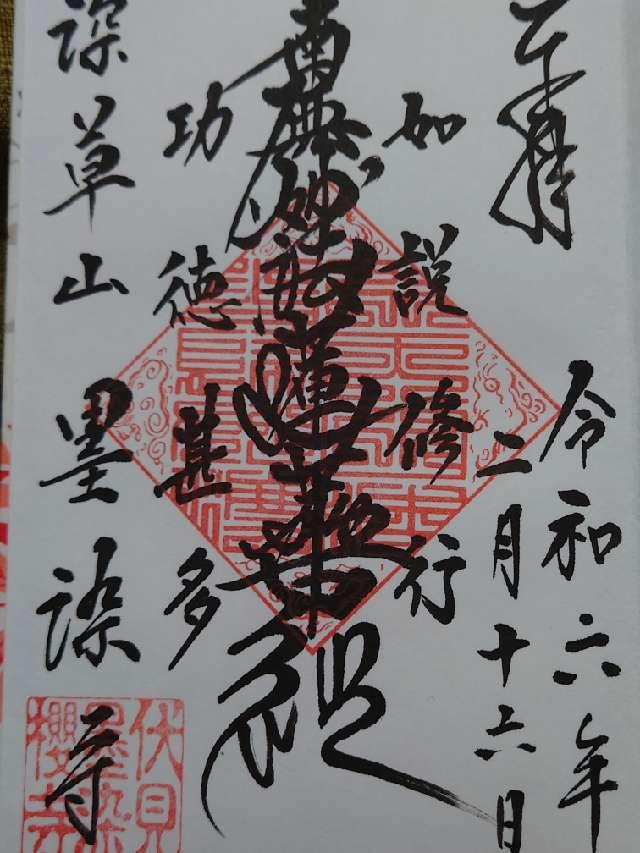 奉拝
令和六年
二月十六日
如説修行
南無妙法蓮華経
功徳甚多
深草山 墨染寺
伏見
墨染
櫻寺